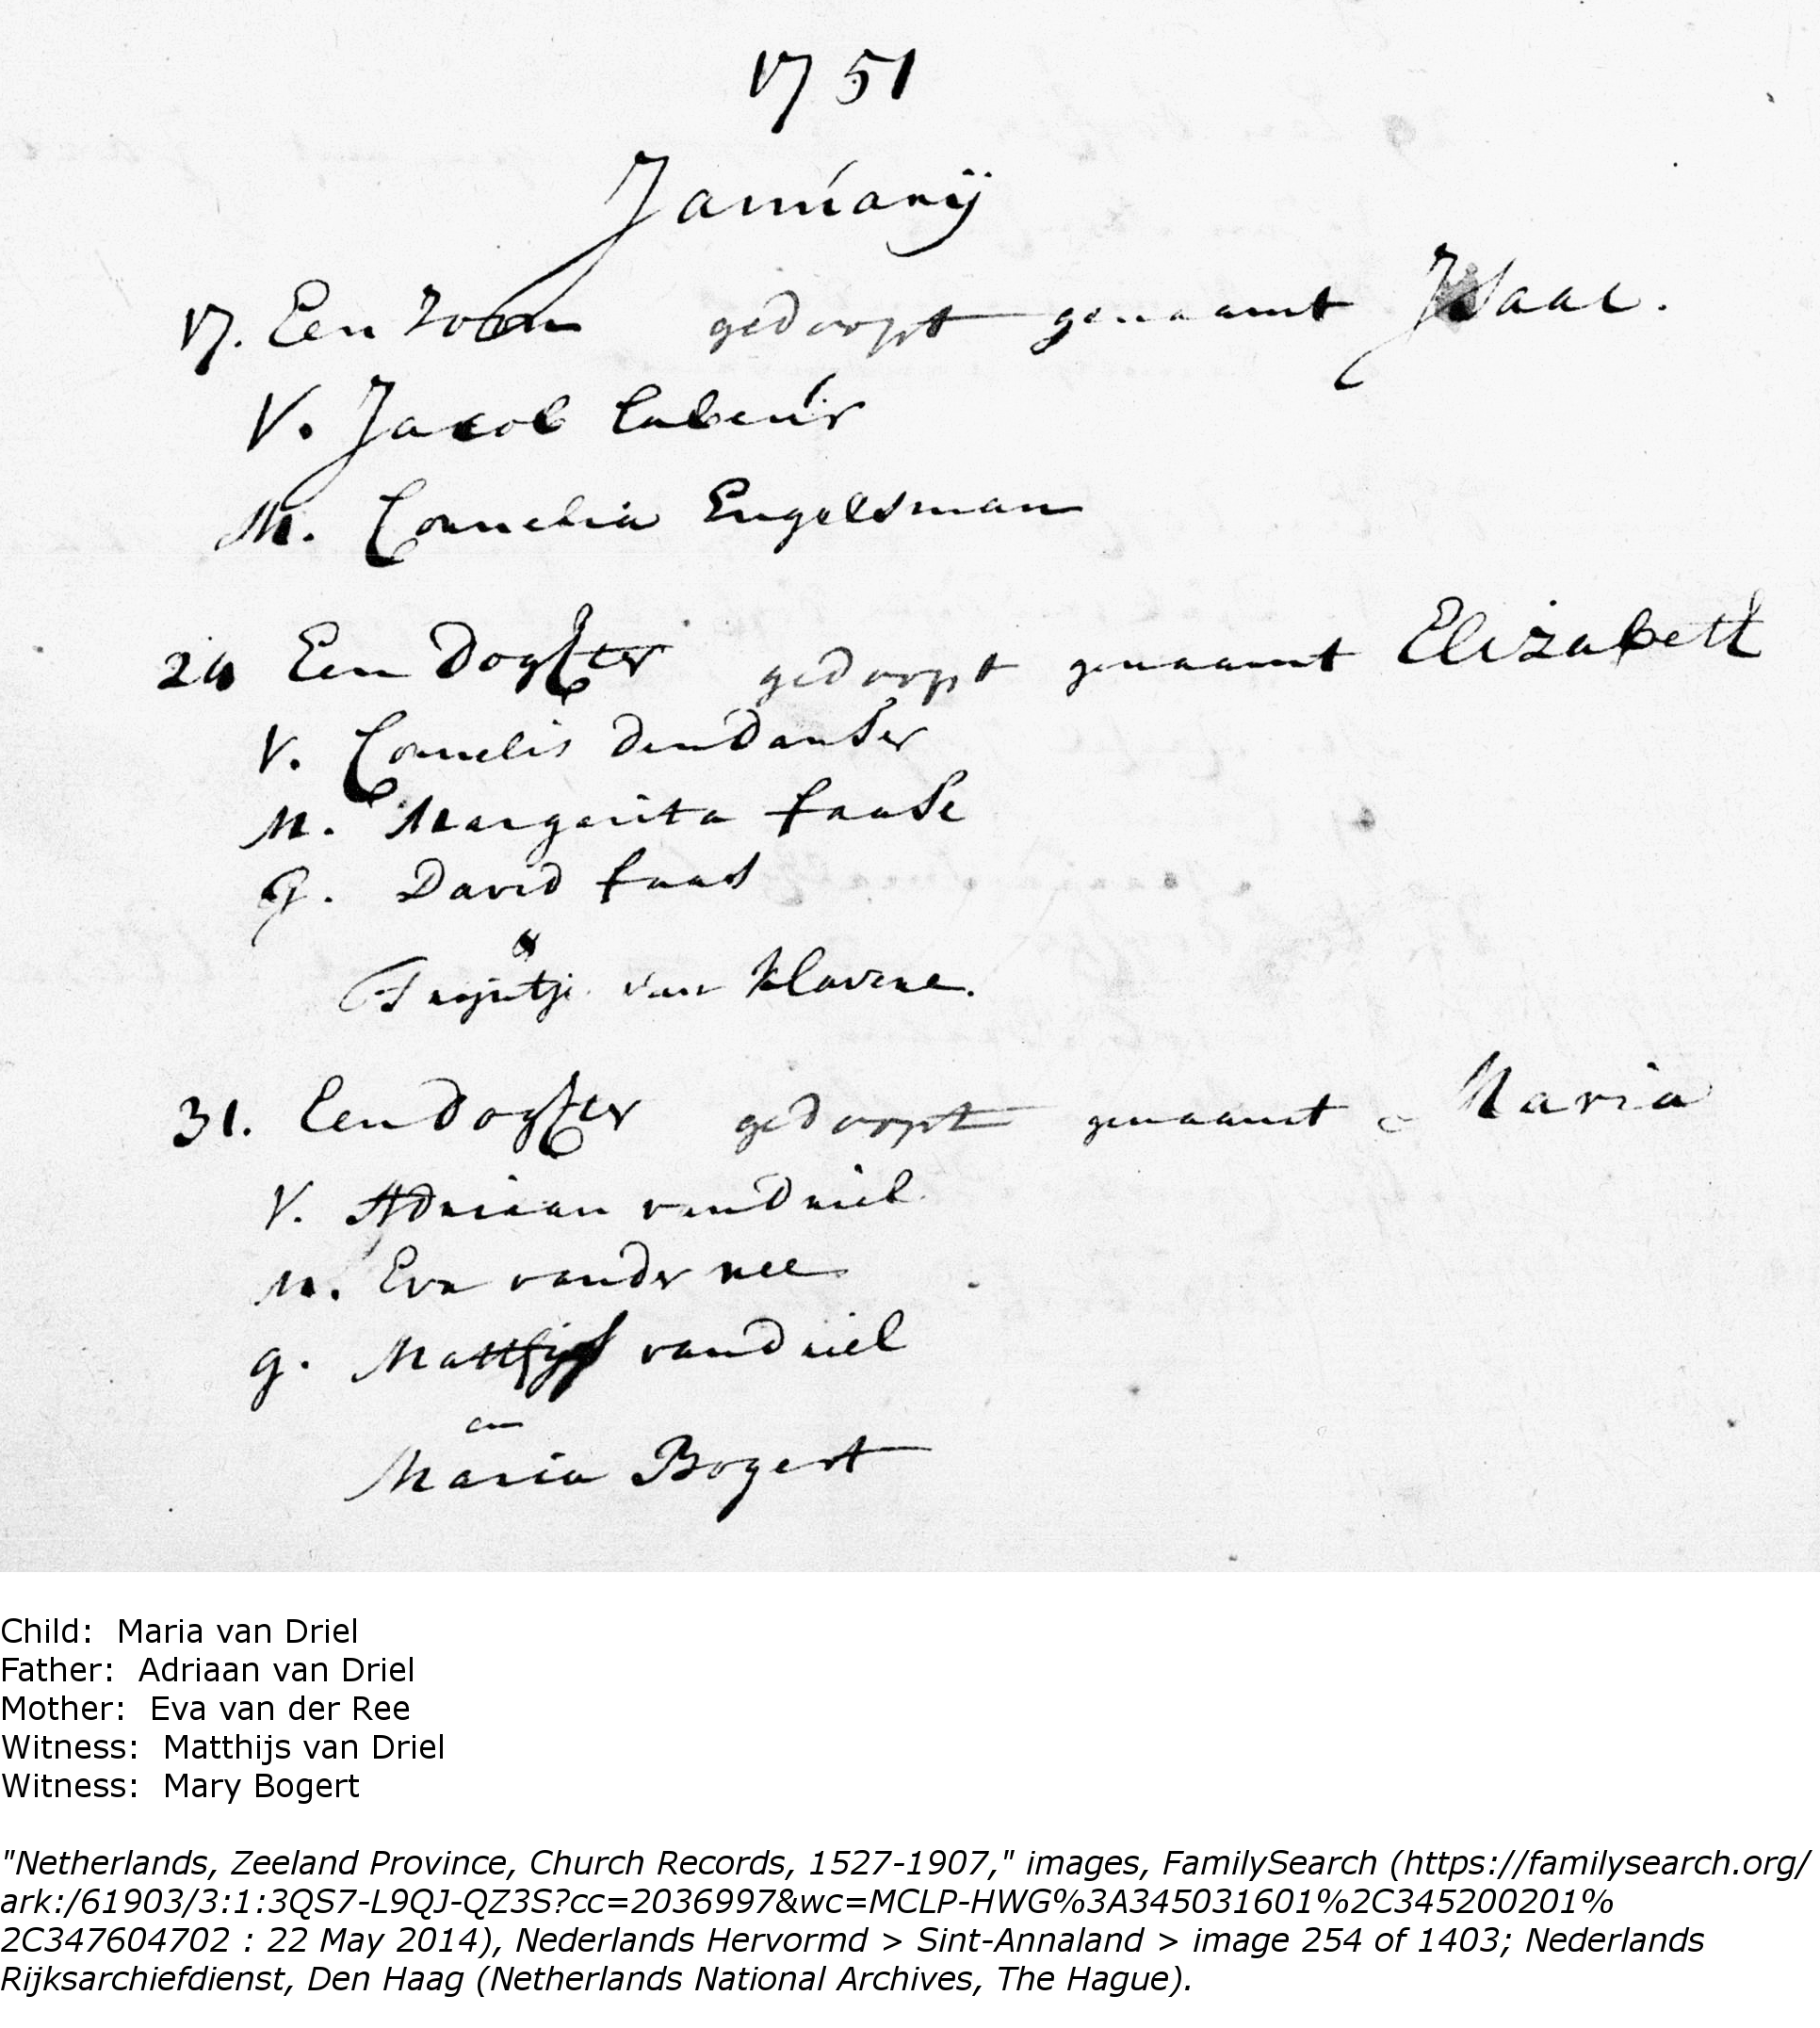 1751
Januarij
17. Een zoon gedoopt genaamt Isaac.
V. Jacob Labeur
M. Cornelia Engelsman
24 Een Dogter gedoopt genaamt Elizabeth
V. Cornelis den Danser
M. Margarita faase
G. David faas
&
Trijntje van Klavere.
31. Een Dogter gedoopt genaamt Maria
V. Adriaan van Driel
M. Eva van der Ree
g. Matthijs van Driel
en
Maria Bogert
Child: Maria van Driel
Father: Adriaan van Driel
Mother: Eva van der Ree
Witness: Matthijs van Driel
Witness: Mary Bogert
"Netherlands, Zeeland Province, Church Records, 1527-1907," images, FamilySearch (https://familysearch.org/
ark:/61903/3:1:3QS7-L9QJ-QZ3S?cc=2036997&wc=MCLP-HWG%3A345031601%2C345200201%
2C347604702 : 22 May 2014), Nederlands Hervormd > Sint-Annaland > image 254 of 1403; Nederlands
Rijksarchiefdienst, Den Haag (Netherlands National Archives, The Hague).